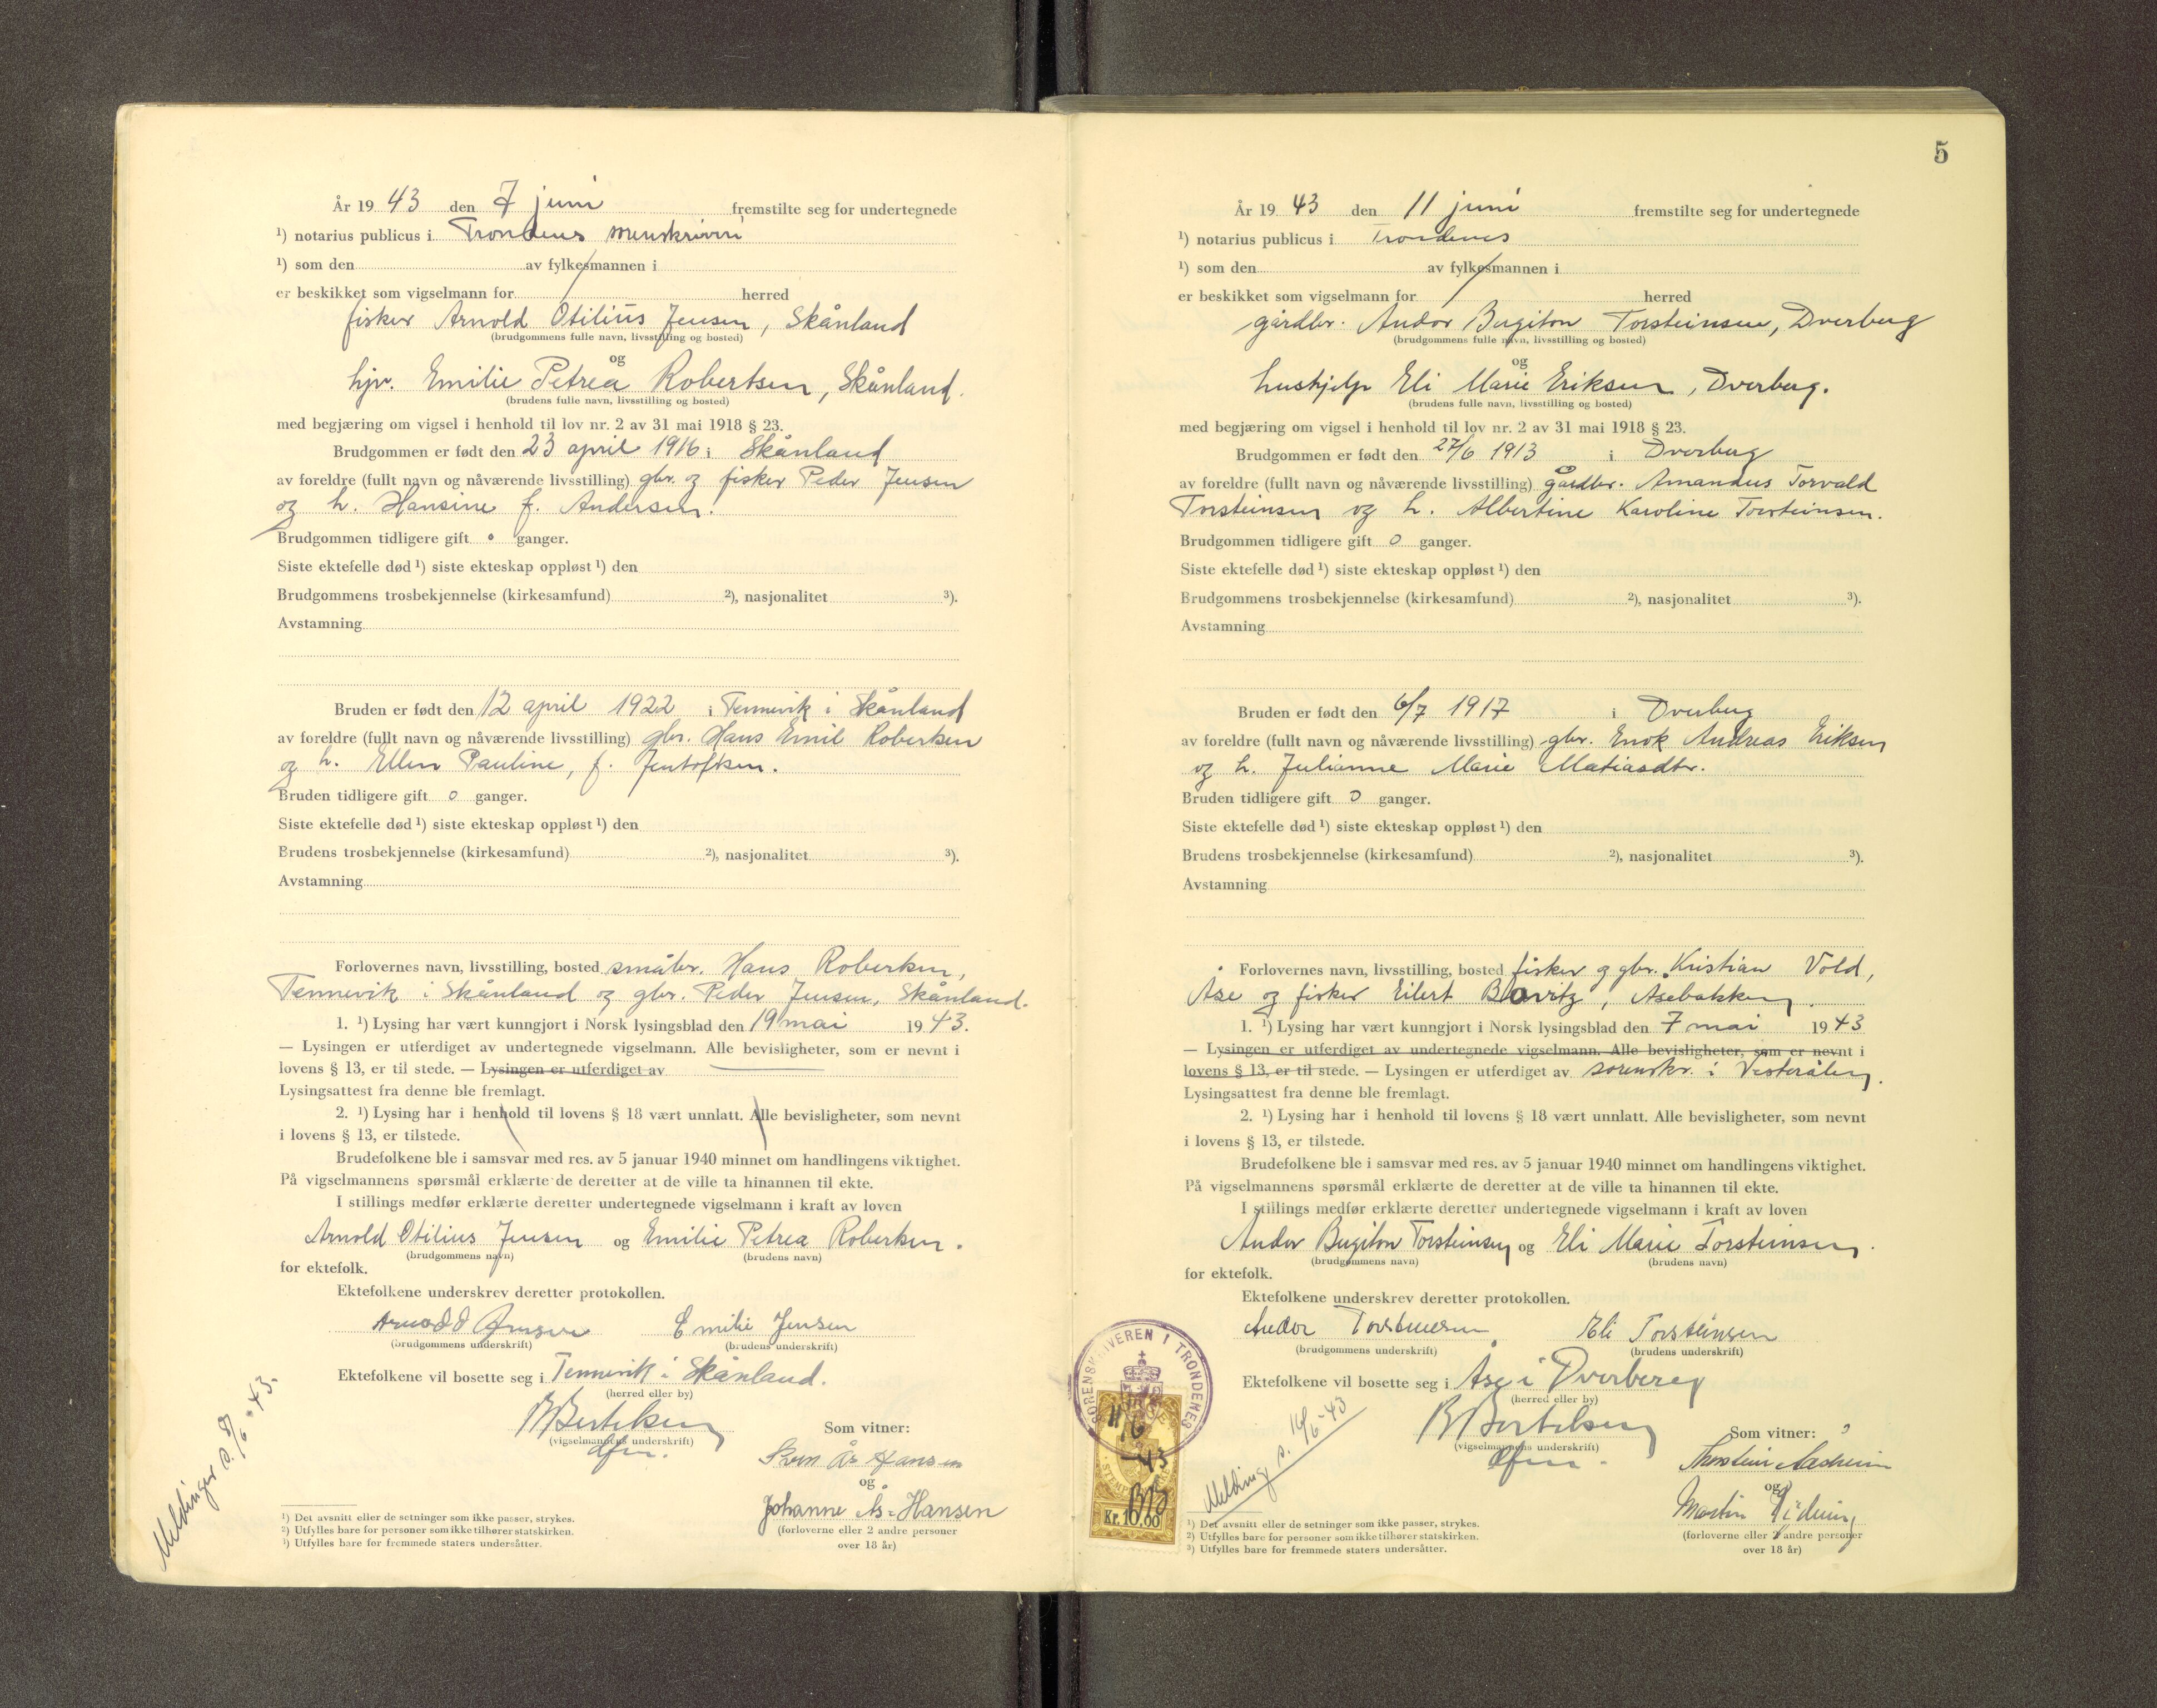 År 19 43 den 7 juni fremstilte seg for undertegnede
¹) notarius publicus i Trondenes sorenskriveri
¹) som den av fylkesmannen i
er beskikket som vigselmann for herred
fisker Arnold Otilius Jensen, Skånland
(brudgommens fulle navn, livsstilling og bosted)
og
hjv. Emilie Petrea Robertsen, Skånland.
(brudens fulle navn, livsstilling og bosted)
med begjæring om vigsel i henhold til lov nr. 2 av 31 mai 1918 § 23.
Brudgommen er født den 23 april 1916 i Skånland
av foreldre (fullt navn og nåværende livsstilling) gbr. og fisker Peder Jensen
og h. Hansine f. Andersen.
Brudgommen tidligere gift 0 ganger.
Siste ektefelle død ¹) siste ekteskap oppløst ¹) den
Brudgommens trosbekjennelse (kirkesamfund) ²), nasjonalitet ³).
Avstamning
Bruden er født den 12 april 1922 i Tennevik i Skånland
av foreldre (fullt navn og nåværende livsstilling) gbr. Hans Emil Robertsen
og h. Ellen Pauline, f. Jentoftsen.
Bruden tidligere gift 0 ganger.
Siste ektefelle død ¹) siste ekteskap oppløst ¹) den
Brudens trosbekjennelse (kirkesamfund) ²), nasjonalitet ³).
Avstamning
Forlovernes navn, livsstilling, bosted småbr. Hans Robertsen,
Tennevik i Skånland og gbr. Peder Jensen, Skånland.
1. ¹) Lysing har vært kunngjort i Norsk lysingsblad den 19 mai 19 43.
— Lysingen er utferdiget av undertegnede vigselmann. Alle bevisligheter, som er nevnt i
lovens § 13, er til stede. — Lysingen er utferdiget av
Lysingsattest fra denne ble fremlagt.
2. ¹) Lysing har i henhold til lovens § 18 vært unnlatt. Alle bevisligheter, som nevnt
i lovens § 13, er tilstede.
Brudefolkene ble i samsvar med res. av 5 januar 1940 minnet om handlingens viktighet.
På vigselmannens spørsmål erklærte de deretter at de ville ta hinannen til ekte.
I stillings medfør erklærte deretter undertegnede vigselmann i kraft av loven
Arnold Otilius Jensen og Emilie Petrea Robertsen.
(brudgommens navn) (brudens navn)
for ektefolk.
Ektefolkene underskrev deretter protokollen.
Arnold Jensen Emilie Jensen
(brudgommens underskrift) (brudens underskrift)
Ektefolkene vil bosette seg i Tennevik i Skånland.
(herred eller by)
B Bertelsen
(vigselmannens underskrift)
Som vitner:
Hansen
og
Johanne Ås-Hansen
(forloverne eller 2 andre personer
over 18 år)
Meldinger s. 8/6-43.
¹) Det avsnitt eller de setninger som ikke passer, strykes.
²) Utfylles bare for personer som ikke tilhører statskirken.
³) Utfylles bare for fremmede staters undersåtter.
5
År 19 43 den 11 juni fremstilte seg for undertegnede
¹) notarius publicus i Trondenes
¹) som den av fylkesmannen i
er beskikket som vigselmann for herred
gårdbr. Andor Bergiton Torsteinsen, Dverberg
(brudgommens fulle navn, livsstilling og bosted)
og
hushjelp Eli Marie Eriksen, Dverberg.
(brudens fulle navn, livsstilling og bosted)
med begjæring om vigsel i henhold til lov nr. 2 av 31 mai 1918 § 23.
Brudgommen er født den 27/6 1913 i Dverberg
av foreldre (fullt navn og nåværende livsstilling) gårdbr. Amandus Torvald
Torsteinsen og h. Albertine Karoline Torsteinsen.
Brudgommen tidligere gift 0 ganger.
Siste ektefelle død ¹) siste ekteskap oppløst ¹) den
Brudgommens trosbekjennelse (kirkesamfund) ²), nasjonalitet ³).
Avstamning
Bruden er født den 6/7 1917 i Dverberg
av foreldre (fullt navn og nåværende livsstilling) gbr. Enok Andreas Eriksen
og h. Julianne Marie Matiasdtr.
Bruden tidligere gift 0 ganger.
Siste ektefelle død ¹) siste ekteskap oppløst ¹) den
Brudens trosbekjennelse (kirkesamfund) ²), nasjonalitet ³).
Avstamning
Forlovernes navn, livsstilling, bosted fisker og gbr. Kristian Vold,
Åse og fisker Eilert Bavitz, Åsebakken.
1. ¹) Lysing har vært kunngjort i Norsk lysingsblad den 7 mai 19 43
— Lysingen er utferdiget av undertegnede vigselmann. Alle bevisligheter, som er nevnt i
lovens § 13, er til stede. — Lysingen er utferdiget av sorenskr. i Vesterålen.
Lysingsattest fra denne ble fremlagt.
2. ¹) Lysing har i henhold til lovens § 18 vært unnlatt. Alle bevisligheter, som nevnt
i lovens § 13, er tilstede.
Brudefolkene ble i samsvar med res. av 5 januar 1940 minnet om handlingens viktighet.
På vigselmannens spørsmål erklærte de deretter at de ville ta hinannen til ekte.
I stillings medfør erklærte deretter undertegnede vigselmann i kraft av loven
Andor Bergiton Torsteinsen og Eli Marie Torsteinsen.
(brudgommens navn) (brudens navn)
for ektefolk.
Ektefolkene underskrev deretter protokollen.
Andor Torsteinsen Eli Torsteinsen
(brudgommens underskrift) (brudens underskrift)
Ektefolkene vil bosette seg i Åse i Dverberg
(herred eller by)
B Bertelsen
(vigselmannens underskrift)
Som vitner:
Thorstein Aasheim
og
Martin
(forloverne eller 2 andre personer
over 18 år)
SORENSKRIVEREN I TRONDENES
11/6-43
BB
Kr. 10.00
Melding s. 14/6-43
¹) Det avsnitt eller de setninger som ikke passer, strykes.
²) Utfylles bare for personer som ikke tilhører statskirken.
³) Utfylles bare for fremmede staters undersåtter.